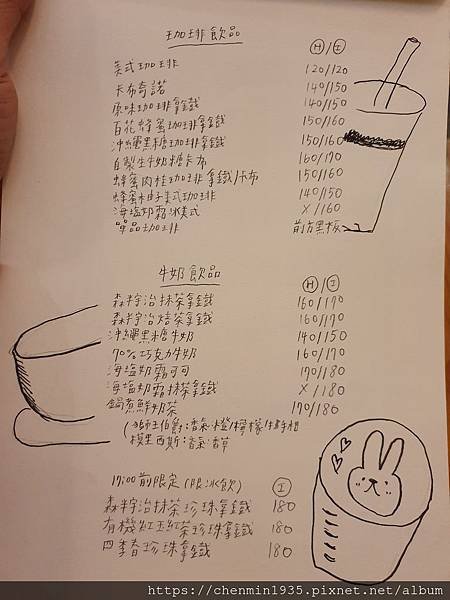 珈琲飲品 Ⓗ/Ⓘ
美式珈琲 120/120
卡布奇諾 140/150
原味珈琲拿鐵 140/150
百花蜂蜜珈琲拿鐵 150/160
沖繩黑糖珈琲拿鐵 150/160
自製生牛奶糖卡布 160/170
蜂蜜肉桂珈琲拿鐵/卡布 150/160
蜂蜜柚子美式珈琲 140/150
海塩奶霜冰美式 X/160
單品珈琲 前方黑板
牛奶飲品 Ⓗ/Ⓘ
森半宇治抹茶拿鐵 160/170
森半宇治焙茶拿鐵 160/170
沖繩黑糖牛奶 140/150
70%巧克力牛奶 160/170
海塩奶霜可可 170/180
海塩奶霜抹茶拿鐵 X/180
鍋煮鮮奶茶 170/180
(獅王伯爵:香氣·橙/檸檬/佛手柑
模里西斯:香氣·香草)
17:00前限定(限冰飲) Ⓘ
森半宇治抹茶珍珠拿鐵 180
有機紅玉紅茶珍珠拿鐵 180
四季春珍珠拿鐵 180
https://chenmin1935.pixnet.net/album